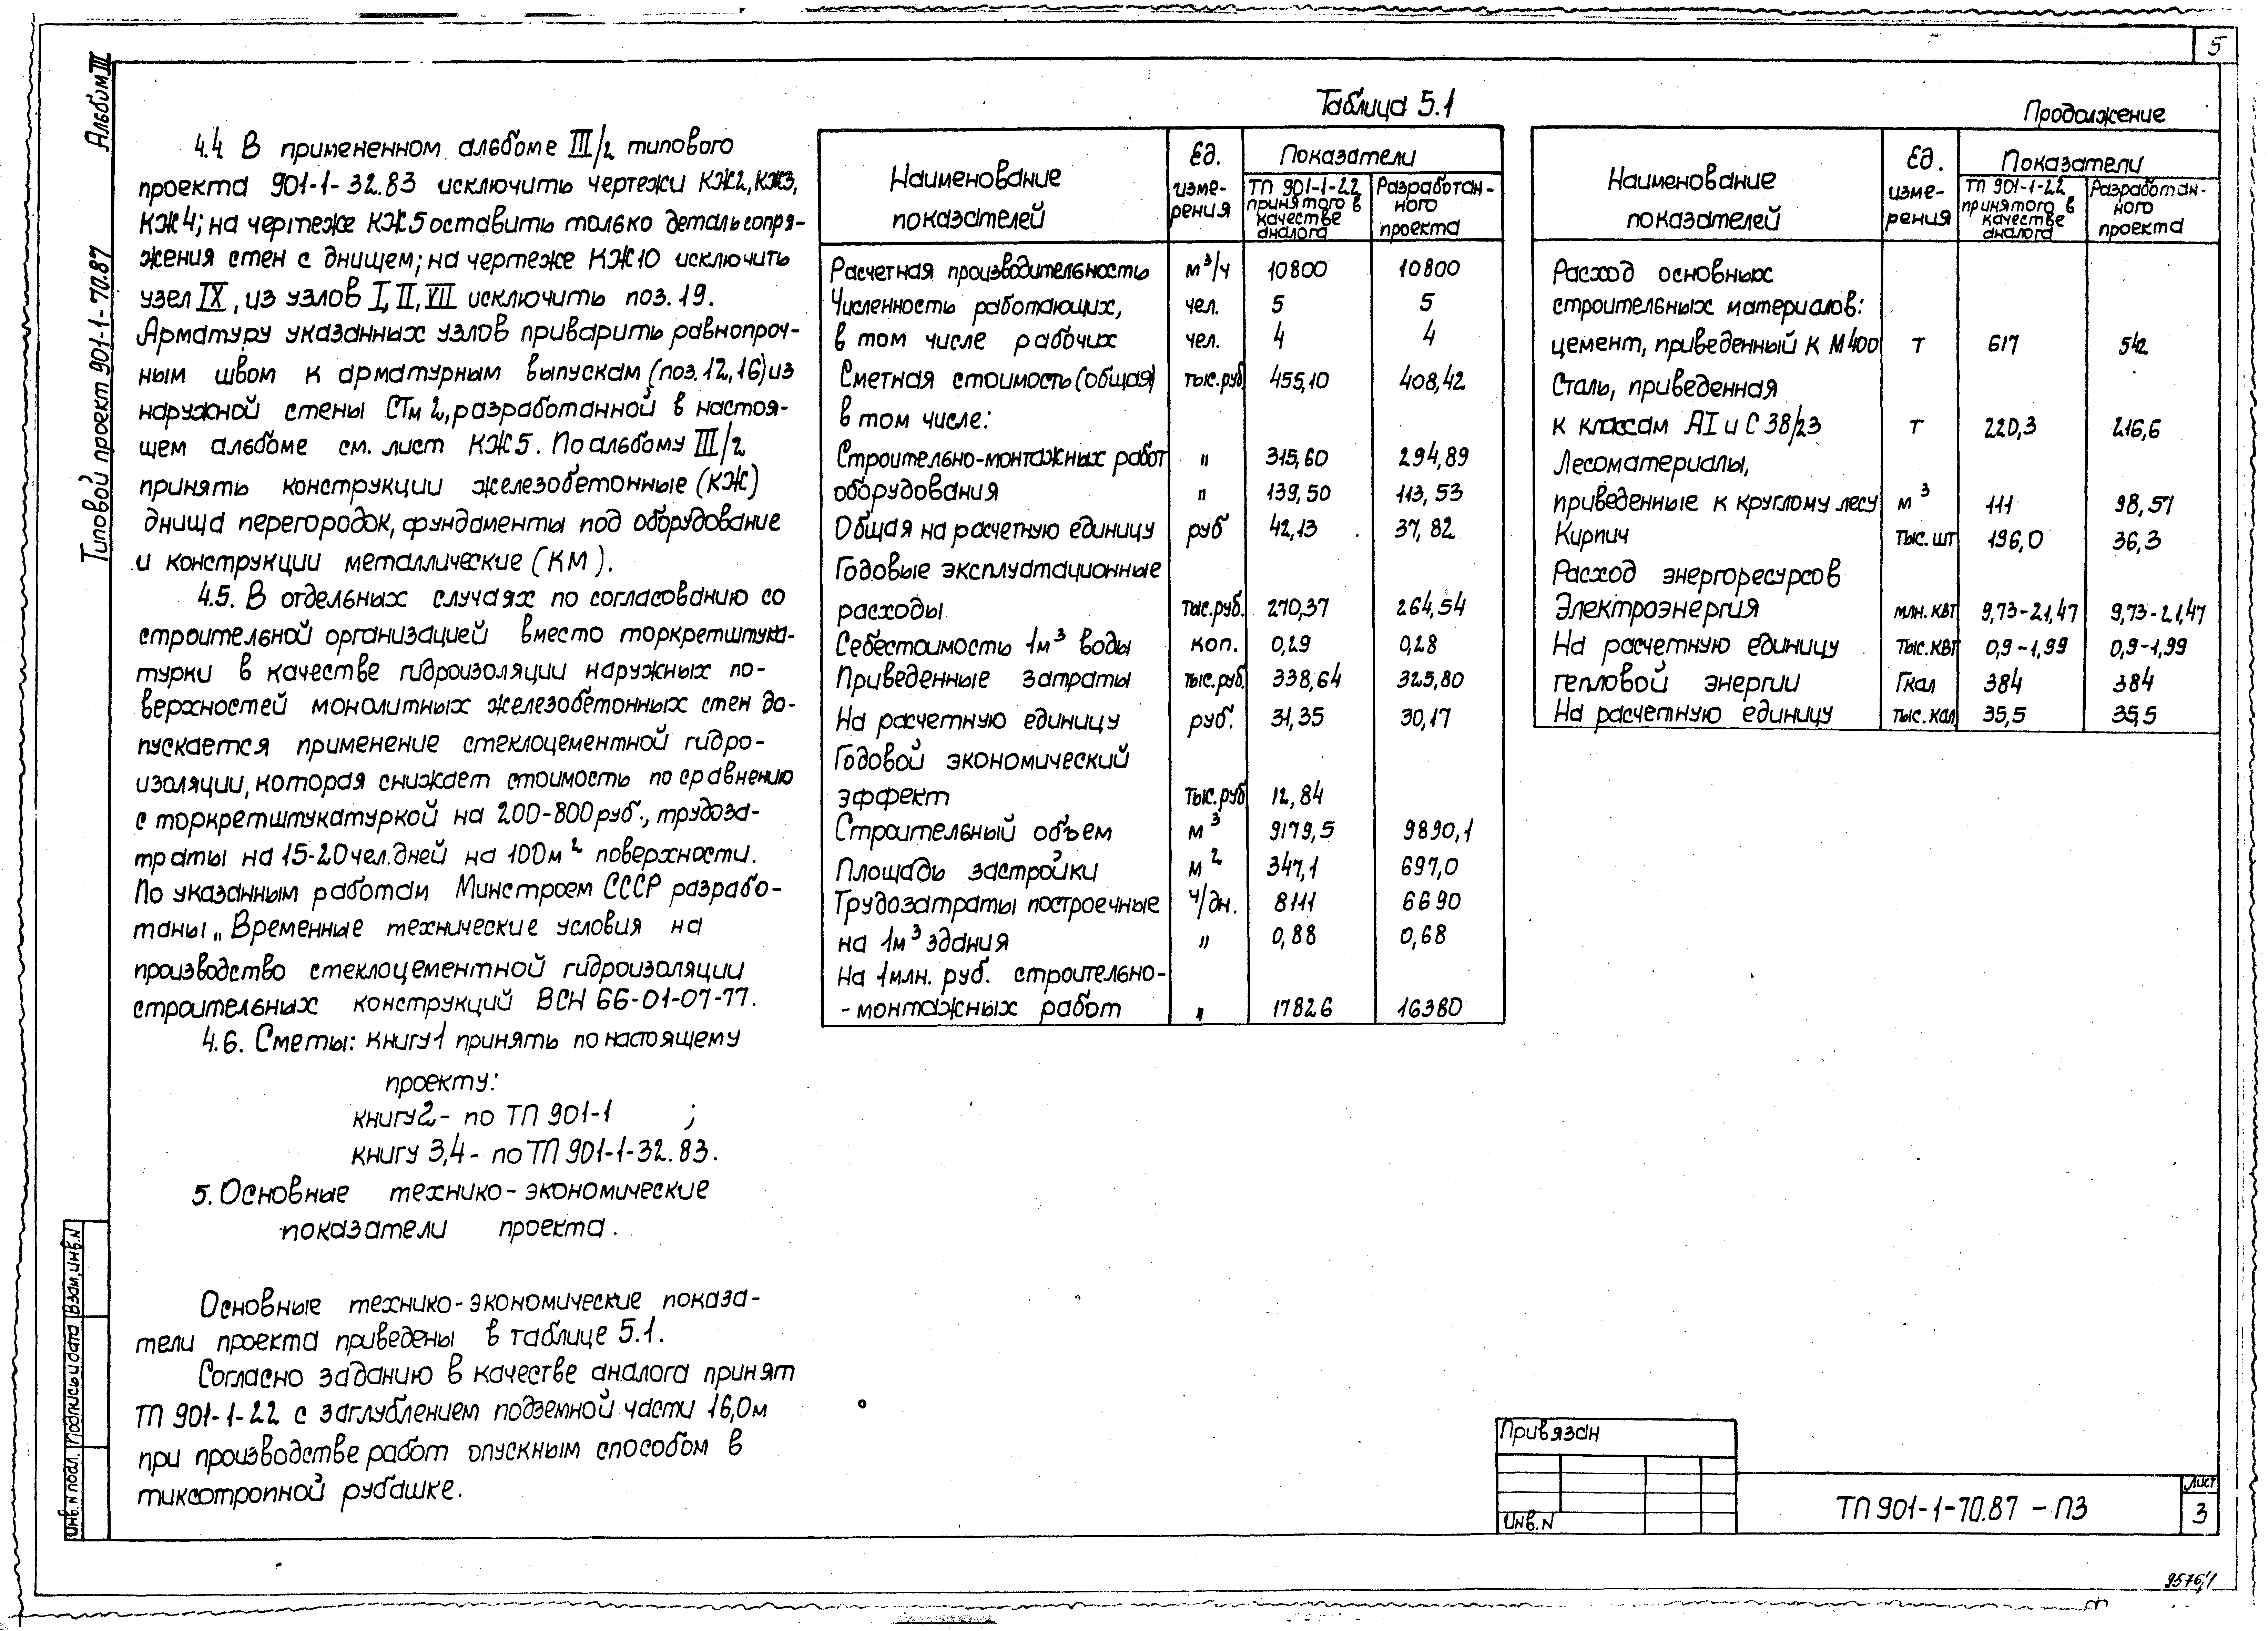 5
Альбом III
Типовой проект 901-1-70.87
4.4 В примененном альбоме III/2 типового
проекта 901-1-32.83 исключить чертежи КЖ2, КЖ3,
КЖ4; на чертеже КЖ5 оставить только деталь сопря-
жения стен с днищем; на чертеже КЖ10 исключить
узел IX, из узлов I, II, VII исключить поз. 19.
Арматуру указанных узлов приварить равнопроч-
ным швом к арматурным выпускам (поз. 12, 16) из
наружной стены СТм 2, разработанной в настоя-
щем альбоме см. лист КЖ5. По альбому III/2
принять конструкции железобетонные (КЖ)
днища перегородок, фундаменты под оборудование
и конструкции металлические (КМ).
4.5. В отдельных случаях по согласованию со
строительной организацией вместо торкретштука-
турки в качестве гидроизоляции наружных по-
верхностей монолитных железобетонных стен до-
пускается применение стеклоцементной гидро-
изоляции, которая снижает стоимость по сравнению
с торкретштукатуркой на 200-800 руб., трудоза-
траты на 15-20 чел.дней на 100м² поверхности.
По указанным работам Минстроем СССР разрабо-
таны „Временные технические условия на
производство стеклоцементной гидроизоляции
строительных конструкций ВСН 66-01-07-77.
4.6. Сметы: книгу 1 принять по настоящему
проекту:
книгу 2 - по ТП 901-1 ;
книгу 3,4 - по ТП 901-1-32.83.
5. Основные технико-экономические
показатели проекта.
Основные технико-экономические показа-
тели проекта приведены в таблице 5.1.
Согласно заданию в качестве аналога принят
ТП 901-1-22 с заглублением подземной части 16,0м
при производстве работ опускным способом в
тиксотропной рубашке.
Таблица 5.1
Наименование показателей Ед. изме-рения Показатели
ТП 901-1-22 принятого в качестве аналога Разработан-ного проекта
Расчетная производительность м³/ч 10800 10800
Численность работающих, чел. 5 5
в том числе рабочих чел. 4 4
Сметная стоимость (общая) тыс.руб 455,10 408,42
в том числе:
Строительно-монтажных работ " 315,60 294,89
оборудования " 139,50 113,53
Общая на расчетную единицу руб 42,13 37,82
Годовые эксплуатационные
расходы тыс.руб. 270,37 264,54
Себестоимость 1м³ воды коп. 0,29 0,28
Приведенные затраты тыс.руб. 338,64 325,80
На расчетную единицу руб. 31,35 30,17
Годовой экономический
эффект тыс.руб 12,84
Строительный объем м³ 9179,5 9890,1
Площадь застройки м² 347,1 697,0
Трудозатраты построечные ч/дн. 8111 6690
на 1м³ здания " 0,88 0,68
На 1 млн. руб. строительно-
-монтажных работ " 17826 16380
Продолжение
Наименование показателей Ед. изме-рения Показатели
ТП 901-1-22 принятого в качестве аналога Разработан-ного проекта
Расход основных
строительных материалов:
цемент, приведенный к М400 т 617 542
Сталь, приведенная
к классам АI и С 38/23 т 220,3 216,6
Лесоматериалы,
приведенные к круглому лесу м³ 111 98,57
Кирпич тыс. шт 196,0 36,3
Расход энергоресурсов
Электроэнергия млн. квт 9,73-21,47 9,73-21,47
На расчетную единицу тыс.квт 0,9-1,99 0,9-1,99
тепловой энергии Гкал 384 384
На расчетную единицу тыс.кал 35,5 35,5
Инв.N подл. Подпись и дата Взам.инв.N
Привязан
Инв.N
ТП 901-1-70.87 - ПЗ
Лист
3
9576/1